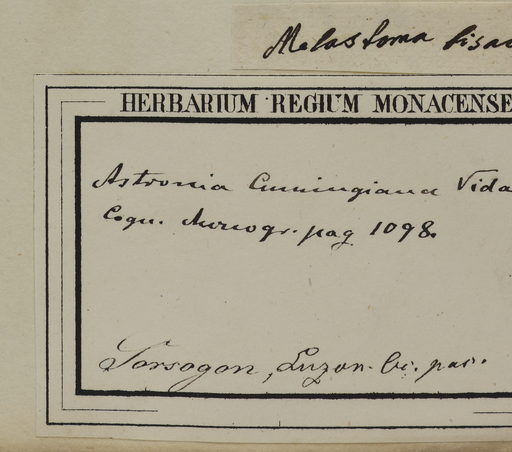 Melastoma bisa
HERBARIUM REGIUM MONACENSE
Astronia Cumingiana Vida
Cogn. Monogr. pag 1098.
Sorsogon, Luzon.